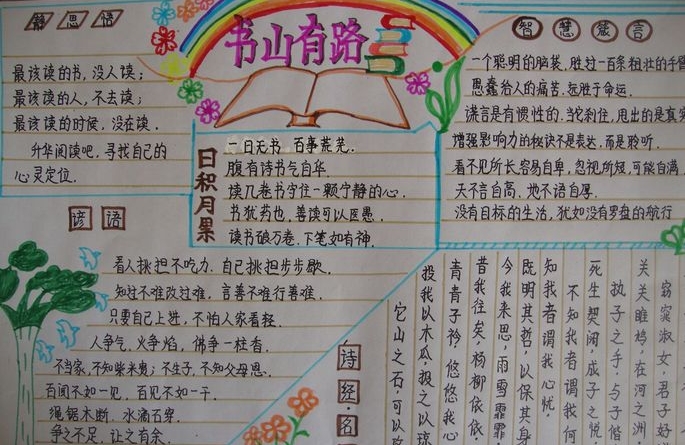 静思语
最该读的书，没人读；
最该读的人，不去读；
最该读的时候，没在读．
升华阅读吧，寻找自己的
心灵定位．
书山有路
智慧箴言
一个聪明的脑袋，胜过一百条粗壮的手臂
愚蠢给人的痛苦，远胜于命运．
谎言是有惯性的．当它刹住，甩出的是真实
增强影响力的秘诀不是表达，而是聆听．
看不见所长，容易自卑，忽视所短，可能自满
天不言自高，地不语自厚．
没有目标的生活，犹如没有罗盘的航行
日积月累
一日无书，百事荒芜．
腹有诗书气自华．
读几卷书守住一颗宁静的心．
书犹药也，善读可以医愚．
读书破万卷，下笔如有神．
谚语
看人挑担不吃力，自己挑担步步歇．
知过不难改过难，言善不难行善难．
只要自己上进，不怕人家看轻．
人争气，火争焰，佛争一柱香．
不当家，不知柴米贵；不生子，不知父母恩．
百闻不如一见，百见不如一干．
绳锯木断，水滴石穿．
争之不足，让之有余．
诗经·名
窈窕淑女，君子好
关关雎鸠，在河之洲
执子之手，与子偕
死生契阔，成子之悦
不知我者谓我何
知我者谓我心忧，
既明其哲，以保其身
今我来思，雨雪霏霏
昔我往矣，杨柳依依
青青子衿，悠悠我心
投我以木瓜，报之以琼
它山之石，可以攻